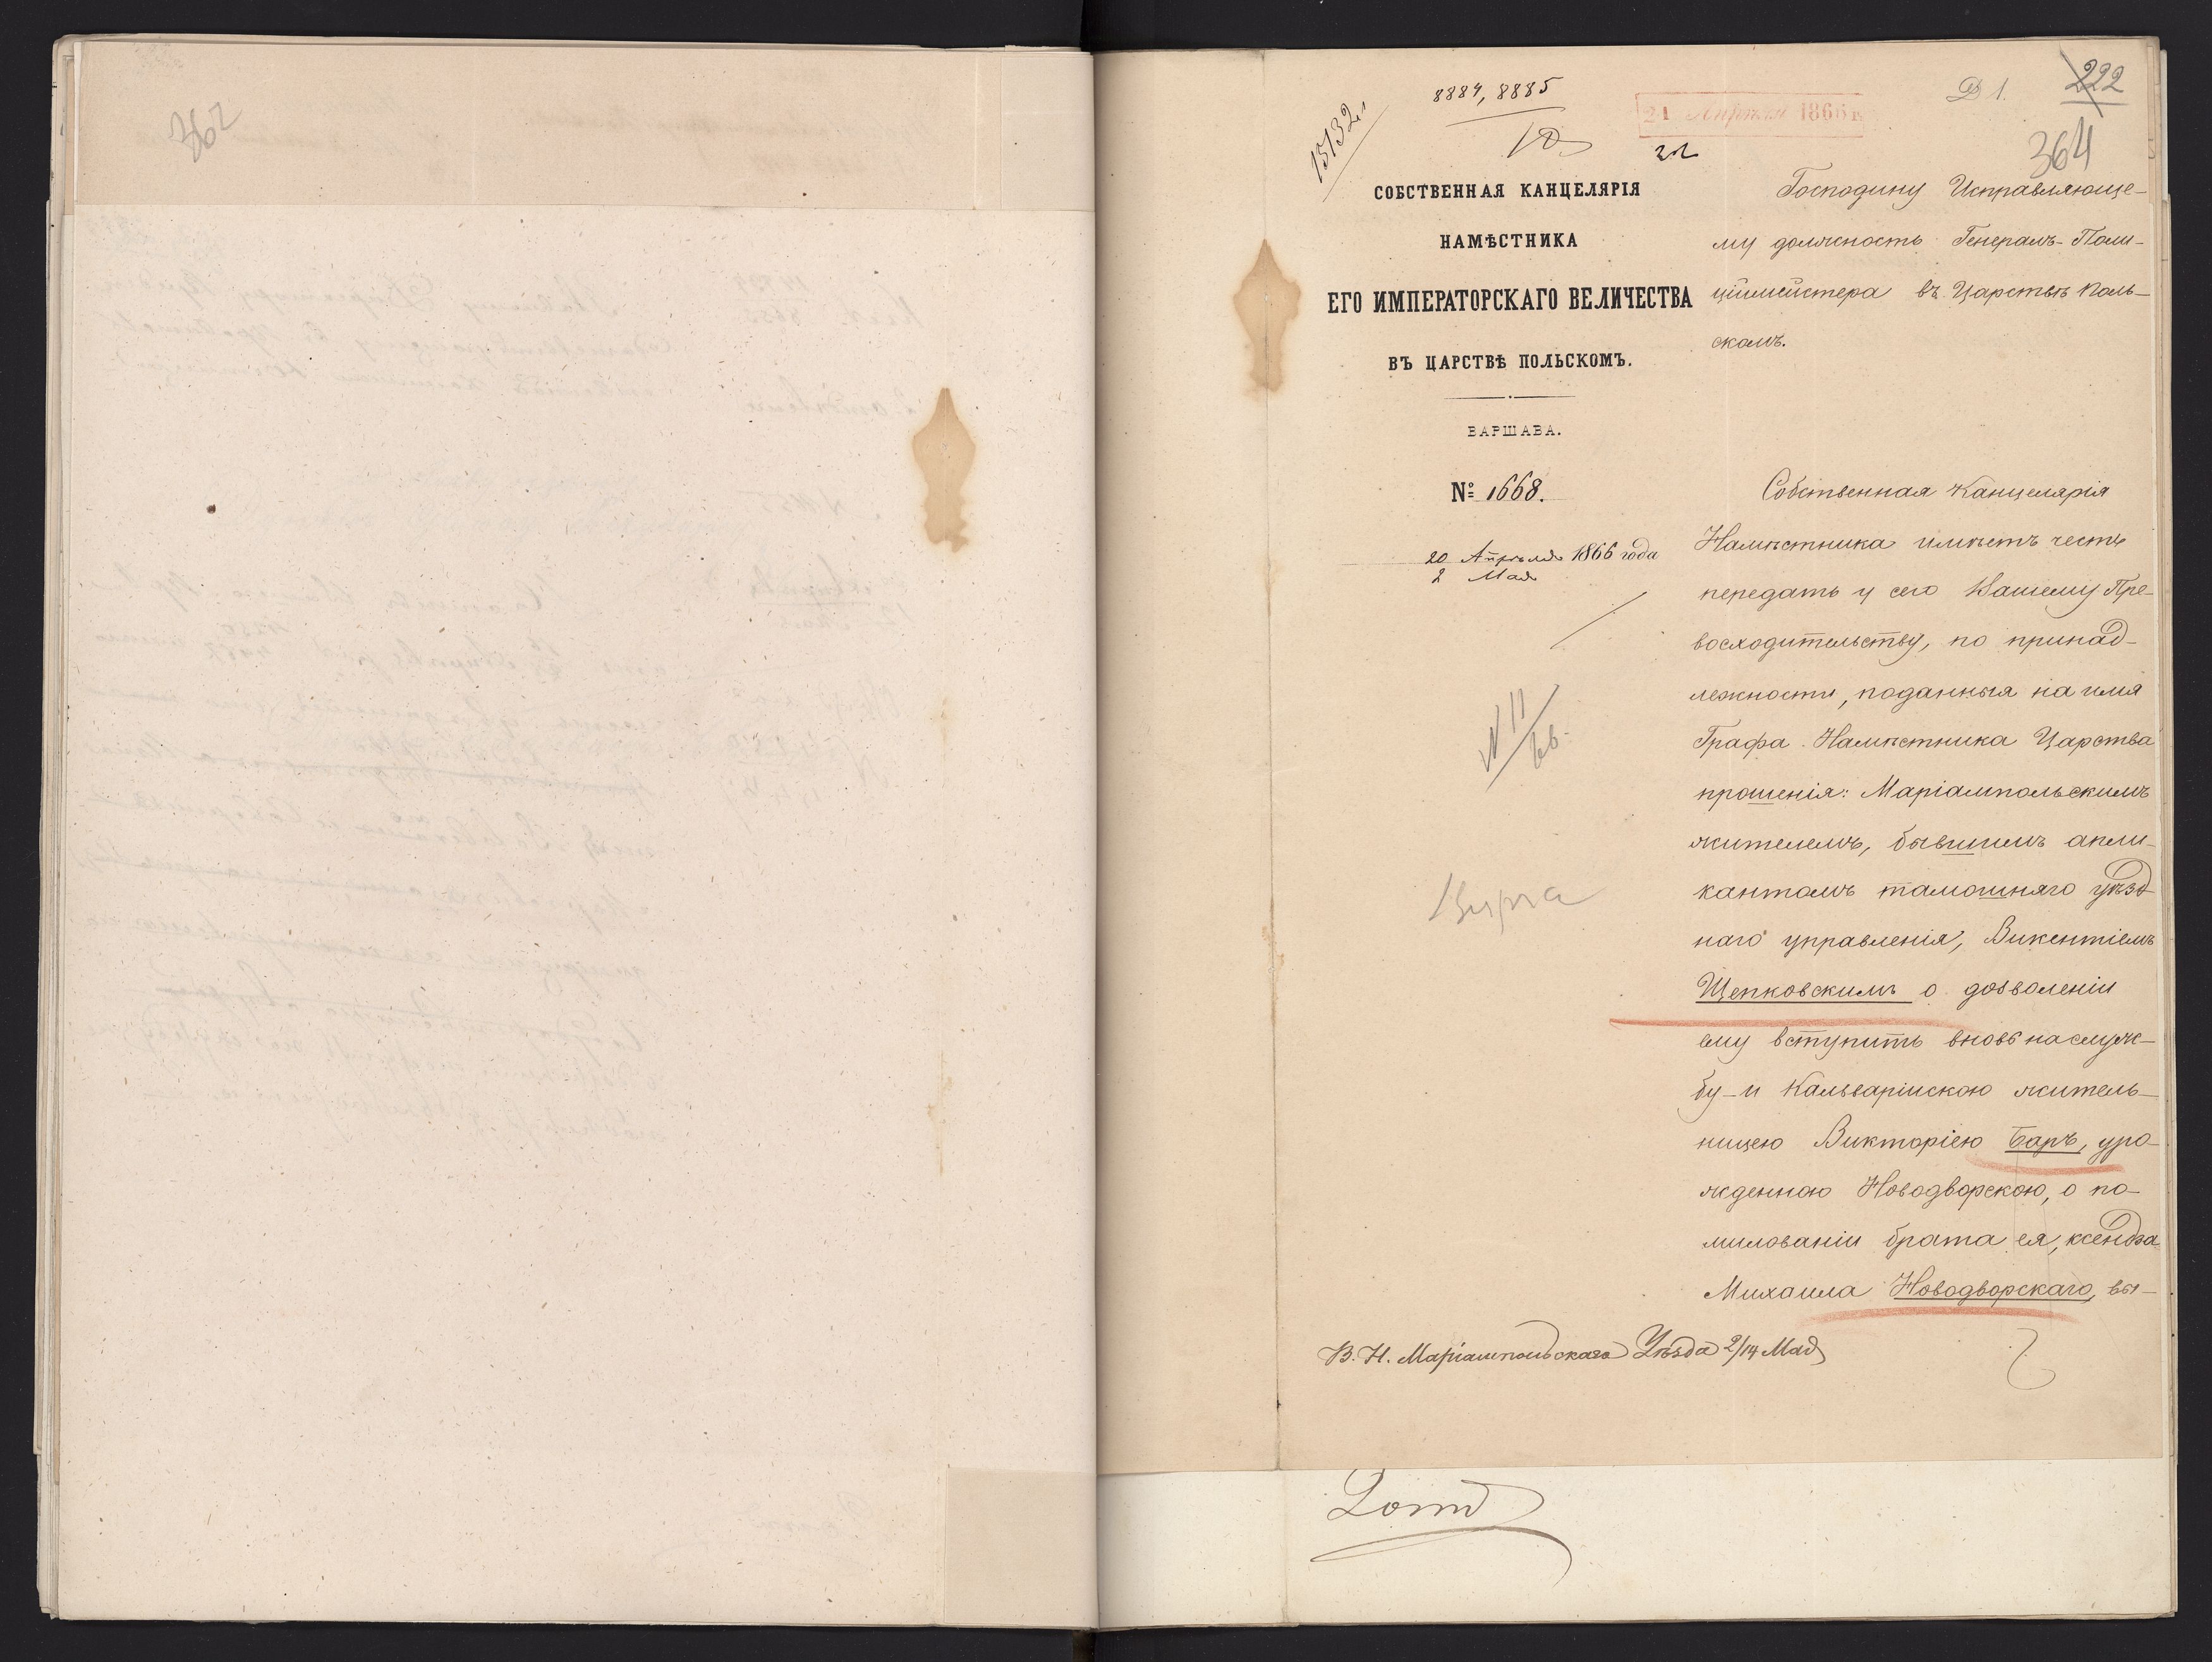 362
8884, 8885
15132
21 Апрѣля 1866 г.
Д 1.
222
364
СОБСТВЕННАЯ КАНЦЕЛЯРІЯ
НАМѢСТНИКА
ЕГО ИМПЕРАТОРСКАГО ВЕЛИЧЕСТВА
ВЪ ЦАРСТВѢ ПОЛЬСКОМЪ.
ВАРШАВА.
№ 1668.
20 Апрѣля 1866 года
2 Мая
N 11
66
Господину Исправляюще-
му должность Генералъ-Поли-
ціймейстера въ Царствѣ Поль-
скомъ.
Собственная Канцелярія
Намѣстника имѣетъ честь
передать у сего Вашему Пре-
восходительству, по принад-
лежности, поданныя на имя
Графа Намѣстника Царства
прошенія: Маріампольскимъ
жителемъ, бывшимъ апли-
кантомъ тамошняго уѣзд-
наго управленія, Викентіемъ
Щепковскимъ о дозволеніи
ему вступить вновь на служ-
бу-и Кальварійскою житель-
ницею Викторіею Баръ, уро-
жденною Новодворскою, о по-
милованіи брата ея, ксендза
Михаила Новодворскаго, вы-
В. Н. Маріампольскаго Уѣзда 2/14 Мая